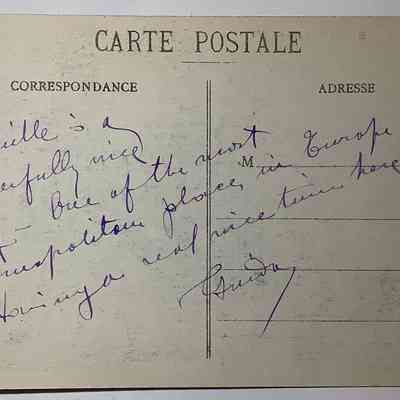 CARTE POSTALE
CORRESPONDANCE
ADRESSE
M
ville is a
nice
One of the most
places in Europe
Having a real nice time here